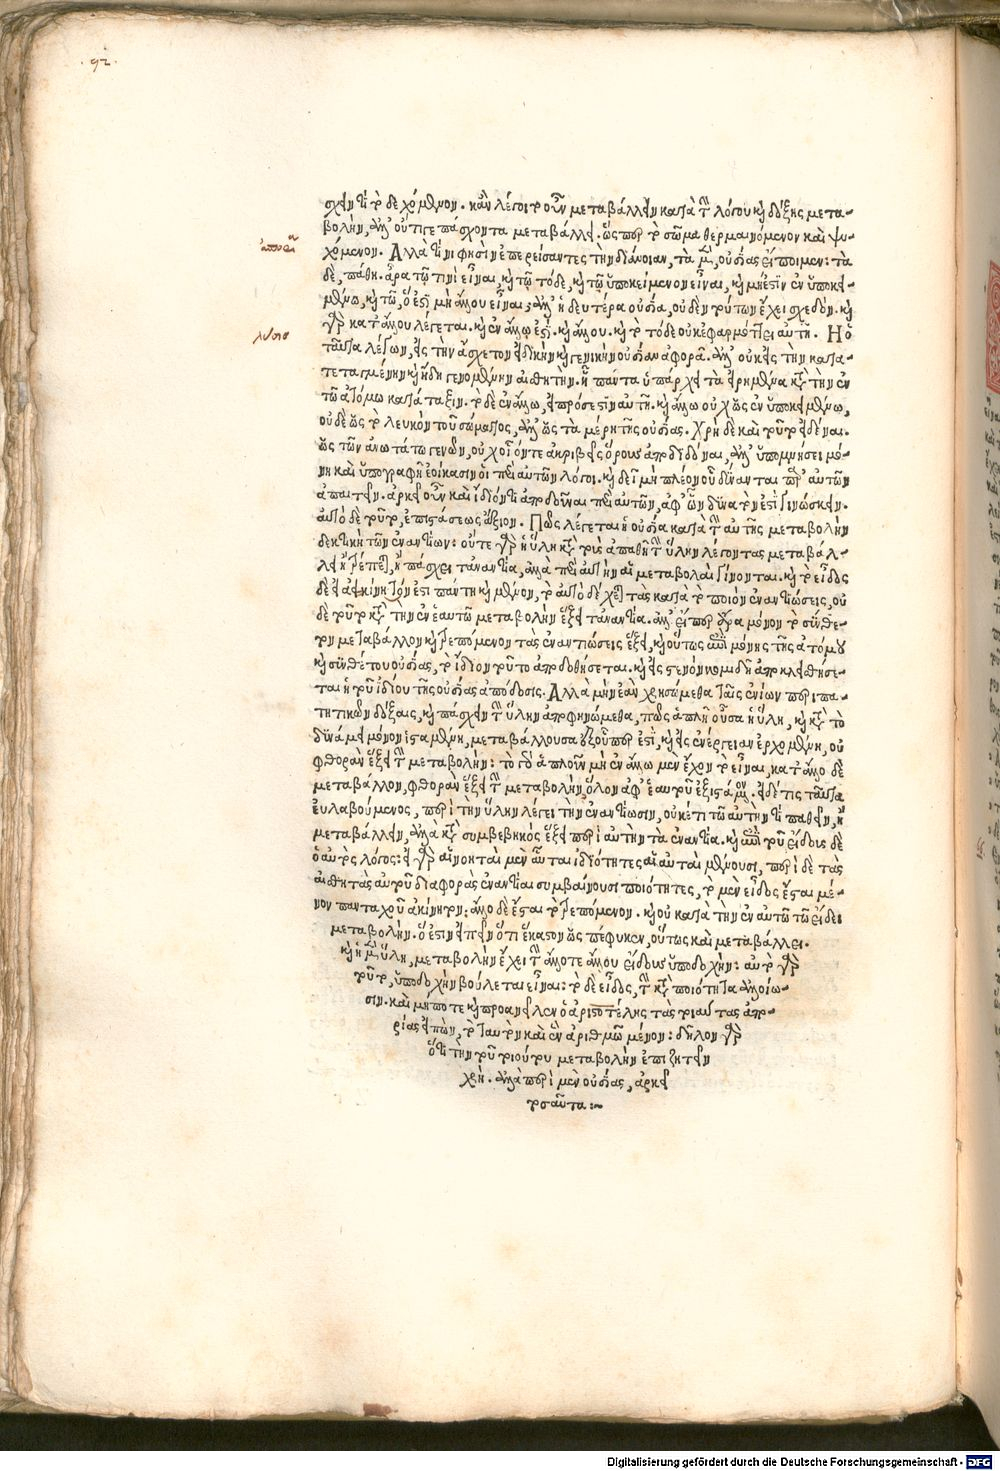 .92.
σχειν τι τὸ δεχόμενον. κἂν λέγοιτο οὖν μεταβάλλειν κατὰ τὴν λόγου καὶ δόξης μετα-
βολὴν, ἀλλ' οὔτιγε πάσχοντα μεταβάλλει. ὥσπερ τὸ σῶμα θερμαινόμενον καὶ ψυ-
ἀπορία
χόμενον. Ἀλλὰ τίνι φησὶν ἐπερείσαντες τὴν διάνοιαν, τὰ μὲν, οὐσίας εἴποιμεν: τὰ
δὲ, πάθη. ἆρα τῷ τινὶ εἶναι, καὶ τῷ τόδε, καὶ τῷ ὑποκείμενον εἶναι, καὶ μή ἐστιν ἐν ὑποκει-
μένῳ, καὶ τῷ, ὅ ἐστι μὴ ἄλλου εἶναι; ἀλλ' ἡ δευτέρα οὐσία, οὐδὲν τούτων ἔχει σχεδόν. καὶ
λύσις
γὰρ κατ' ἄλλου λέγεται. καὶ ἐν ἄλλῳ ἐστί. καὶ ἄλλου. καὶ τὸ τόδε οὐκ ἐφαρμόττει αὐτῇ. Ἢ ὁ
ταῦτα λέγων, εἰς τὴν ἄσχετον εἰδικὴν καὶ γενικὴν οὐσίαν ἀφορᾷ. ἀλλ' οὐκ εἰς τὴν κατα-
τεταγμένην καὶ ἤδη γενομένην αἰσθητήν. ᾗ πάντα ὑπάρχει τὰ εἰρημένα κατὰ τὴν ἐν
τῷ ἀτόμῳ κατάταξιν. τὸ δὲ ἐν ἄλλῳ, εἰ πρόσεστιν αὐτῇ. καὶ ἄλλῳ οὐχ ὡς ἐν ὑποκειμένῳ,
οὐδὲ ὡς τὸ λευκὸν τοῦ σώματος, ἀλλ' ὡς τὰ μέρη τῆς οὐσίας. Χρὴ δὲ καὶ τοῦτο εἰδέναι.
ὡς τῶν ἀνωτάτω γενῶν, οὐχ οἷόν τε ἀκριβεῖς ὅρους ἀποδιδόναι, ἀλλ' ὑπομνήσει μό-
νῃ καὶ ὑπογραφῇ ἐοίκασιν οἱ περὶ αὐτῶν λόγοι. καὶ δεῖ μὴ πλέον οὗ δύνανται παρ' αὐτῶν
ἀπαιτεῖν. ἀρκεῖ οὖν καὶ ἴδιόν τι ἀποδοῦναι περὶ αὐτῶν, ἀφ' ὧν δυνατόν ἐστι γινώσκειν.
αὐτὸ δὲ τοῦτο, ἐπιστάσεως ἄξιον. Πῶς λέγεται ἡ οὐσία κατὰ τὴν αὑτῆς μεταβολὴν
δεκτικὴ τῶν ἐναντίων: οὔτε γὰρ ἡ ὕλη κατὰ τοὺς ἀπαθῆ τὴν ὕλην λέγοντας μεταβάλ-
λει ἢ τρέπεται, ἢ πάσχει τἀναντία, ἀλλὰ περὶ αὐτὴν αἱ μεταβολαὶ γίνονται. καὶ τὸ εἶδος
δὲ εἰ ἀκίνητόν ἐστι πάντη καὶ μένον, τὸ αὐτὸ δέχεται τὰς κατὰ τὸ ποιὸν ἐναντιώσεις, οὐ
δὲ τοῦτο κατὰ τὴν ἐν ἑαυτῷ μεταβολὴν ἕξει τἀναντία. ἀλλ' εἴπερ ἄρα μόνον τὸ σύνθε-
τον μεταβάλλον καὶ τρεπόμενον τὰς ἐναντιώσεις ἕξει, καὶ οὕτως ἐπὶ μόνης τῆς ἀτόμου
καὶ συνθέτου οὐσίας, τὸ ἴδιον τοῦτο ἀποδοθήσεται. καὶ εἰς στενὸν κομιδῇ ἀποκλεισθήσε-
ται ἡ τοῦ ἰδίου τῆς οὐσίας ἀπόδοσις. Ἀλλὰ μὴν ἐὰν χρησώμεθα ταῖς ἐνίων περιπα-
τητικῶν δόξαις, καὶ πάσχειν τὴν ὕλην ἀποφηνώμεθα, πῶς ἁπλῆ οὖσα ἡ ὕλη, καὶ κατὰ τὸ
δυνάμει μόνον ἱσταμένη, μεταβάλλουσα ἐξ οὗπερ ἐστὶ, καὶ εἰς ἐνέργειαν ἐρχομένη, οὐ
φθορὰν ἕξει τὴν μεταβολήν: τὸ γὰρ ἁπλοῦν μὴ ἐν ἄλλῳ μὲν ἔχον τὸ εἶναι, κατ' ἄλλο δὲ
μεταβάλλον, φθορὰν ἕξει τὴν μεταβολὴν, ὅλον ἀφ' ἑαυτοῦ ἐξιστάμενον. εἰ δέ τις ταῦτα
εὐλαβούμενος, περὶ τὴν ὕλην λέγει τὴν ἐναντίωσιν, οὐκέτι τῷ αὐτήν τι παθεῖν, ἢ
μεταβάλλειν, ἀλλὰ κατὰ συμβεβηκὸς ἕξει περὶ αὐτὴν τὰ ἐναντία. καὶ ἐπὶ τοῦ εἴδους δὲ
ὁ αὐτὸς λόγος: εἰ γὰρ αἴρονται μὲν αὗται ἰδιότητες αἳ αὐταὶ μένουσι, περὶ δὲ τὰς
αἰσθητὰς αὐτοῦ διαφορὰς ἐναντίαι συμβαίνουσι ποιότητες, τὸ μὲν εἶδος ἔσται μέ-
νον πανταχοῦ ἀκίνητον: ἄλλο δὲ ἔσται τὸ τρεπόμενον. καὶ οὐ κατὰ τὴν ἐν αὐτῷ τῷ εἴδει
μεταβολήν. ὅ ἐστιν εἰπεῖν ὅτι ἕκαστον ὡς πέφυκεν, οὕτως καὶ μεταβάλλει.
καὶ ἡ μὲν ὕλη, μεταβολὴν ἔχει τὴν ἄλλοτε ἄλλου εἴδους ὑποδοχήν: αὐτὸ γὰρ
τοῦτο, ὑποδοχὴν βούλεται εἶναι: τὸ δὲ εἶδος, τὴν κατὰ ποιότητα ἀλλοίω-
σιν. καὶ μήποτε καὶ προανεῖλεν ὁ ἀριστοτέλης τὰς τοιαύτας ἀπο-
ρίας εἰπὼν, τὸ ταυτὸν καὶ ἓν ἀριθμῷ μένον: δῆλον γὰρ
ὅτι τὴν τοῦ τοιούτου μεταβολὴν ἐπιζητεῖν
χρή. ἀλλὰ περὶ μὲν οὐσίας, ἀρκεῖ
τοσαῦτα:~
Digitalisierung gefördert durch die Deutsche Forschungsgemeinschaft - DFG